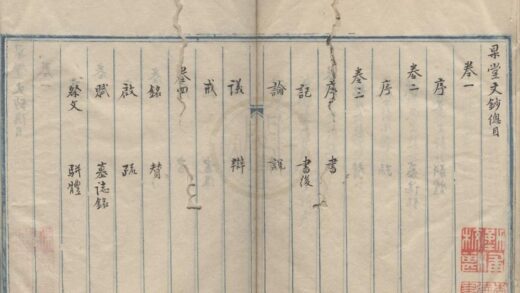 杲堂文鈔總目
卷一
序
卷二
序
卷三
序 書
記 書後
論 說
議 辯
戒
卷四
銘 贊
啟 疏
賦 墓誌銘
祭文 駢體